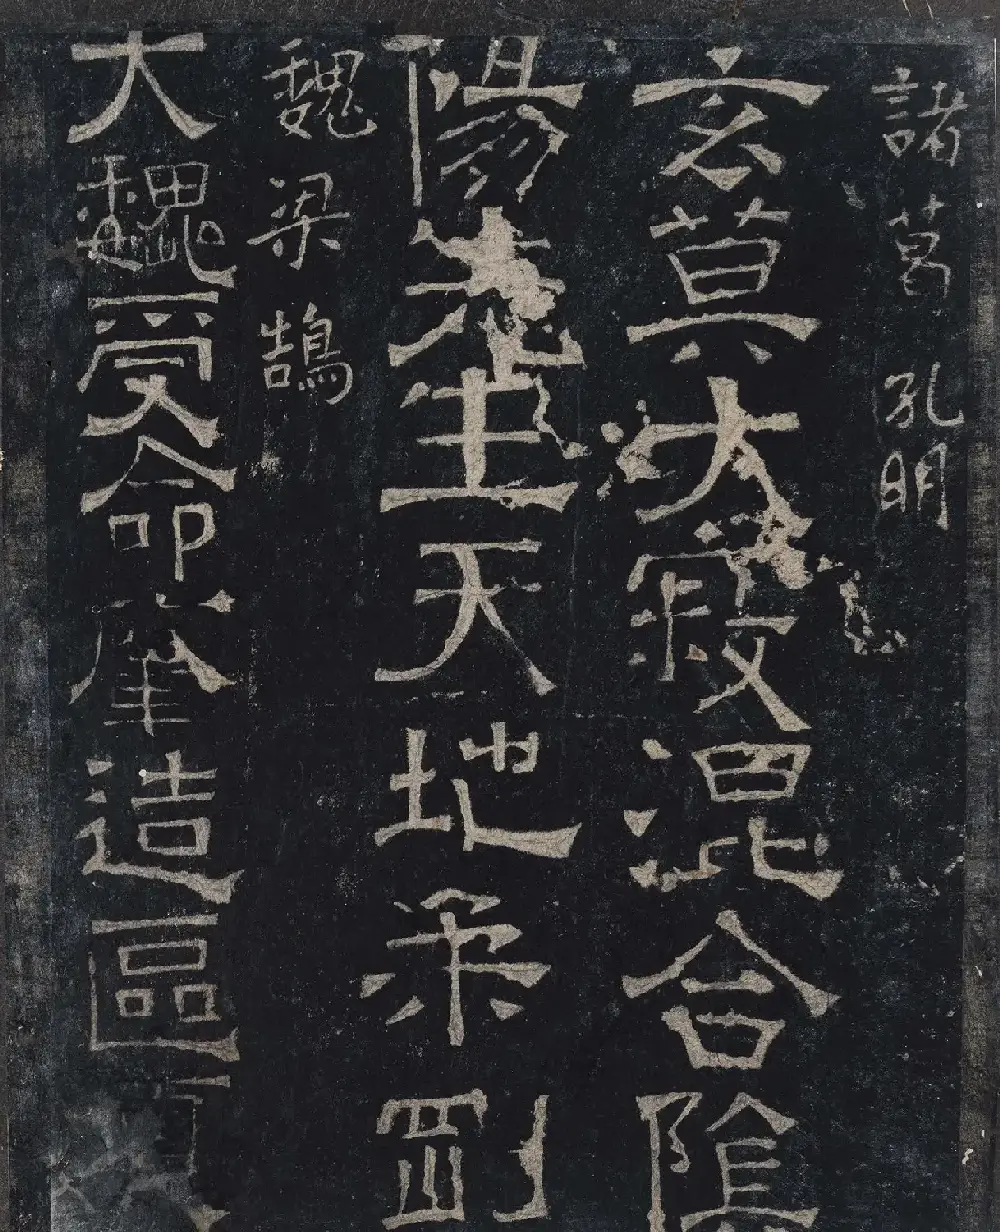 諸葛孔明
玄莫大寂混合陰
陽先生天地柔剛
魏梁鵠
大魏受命肇造區夏